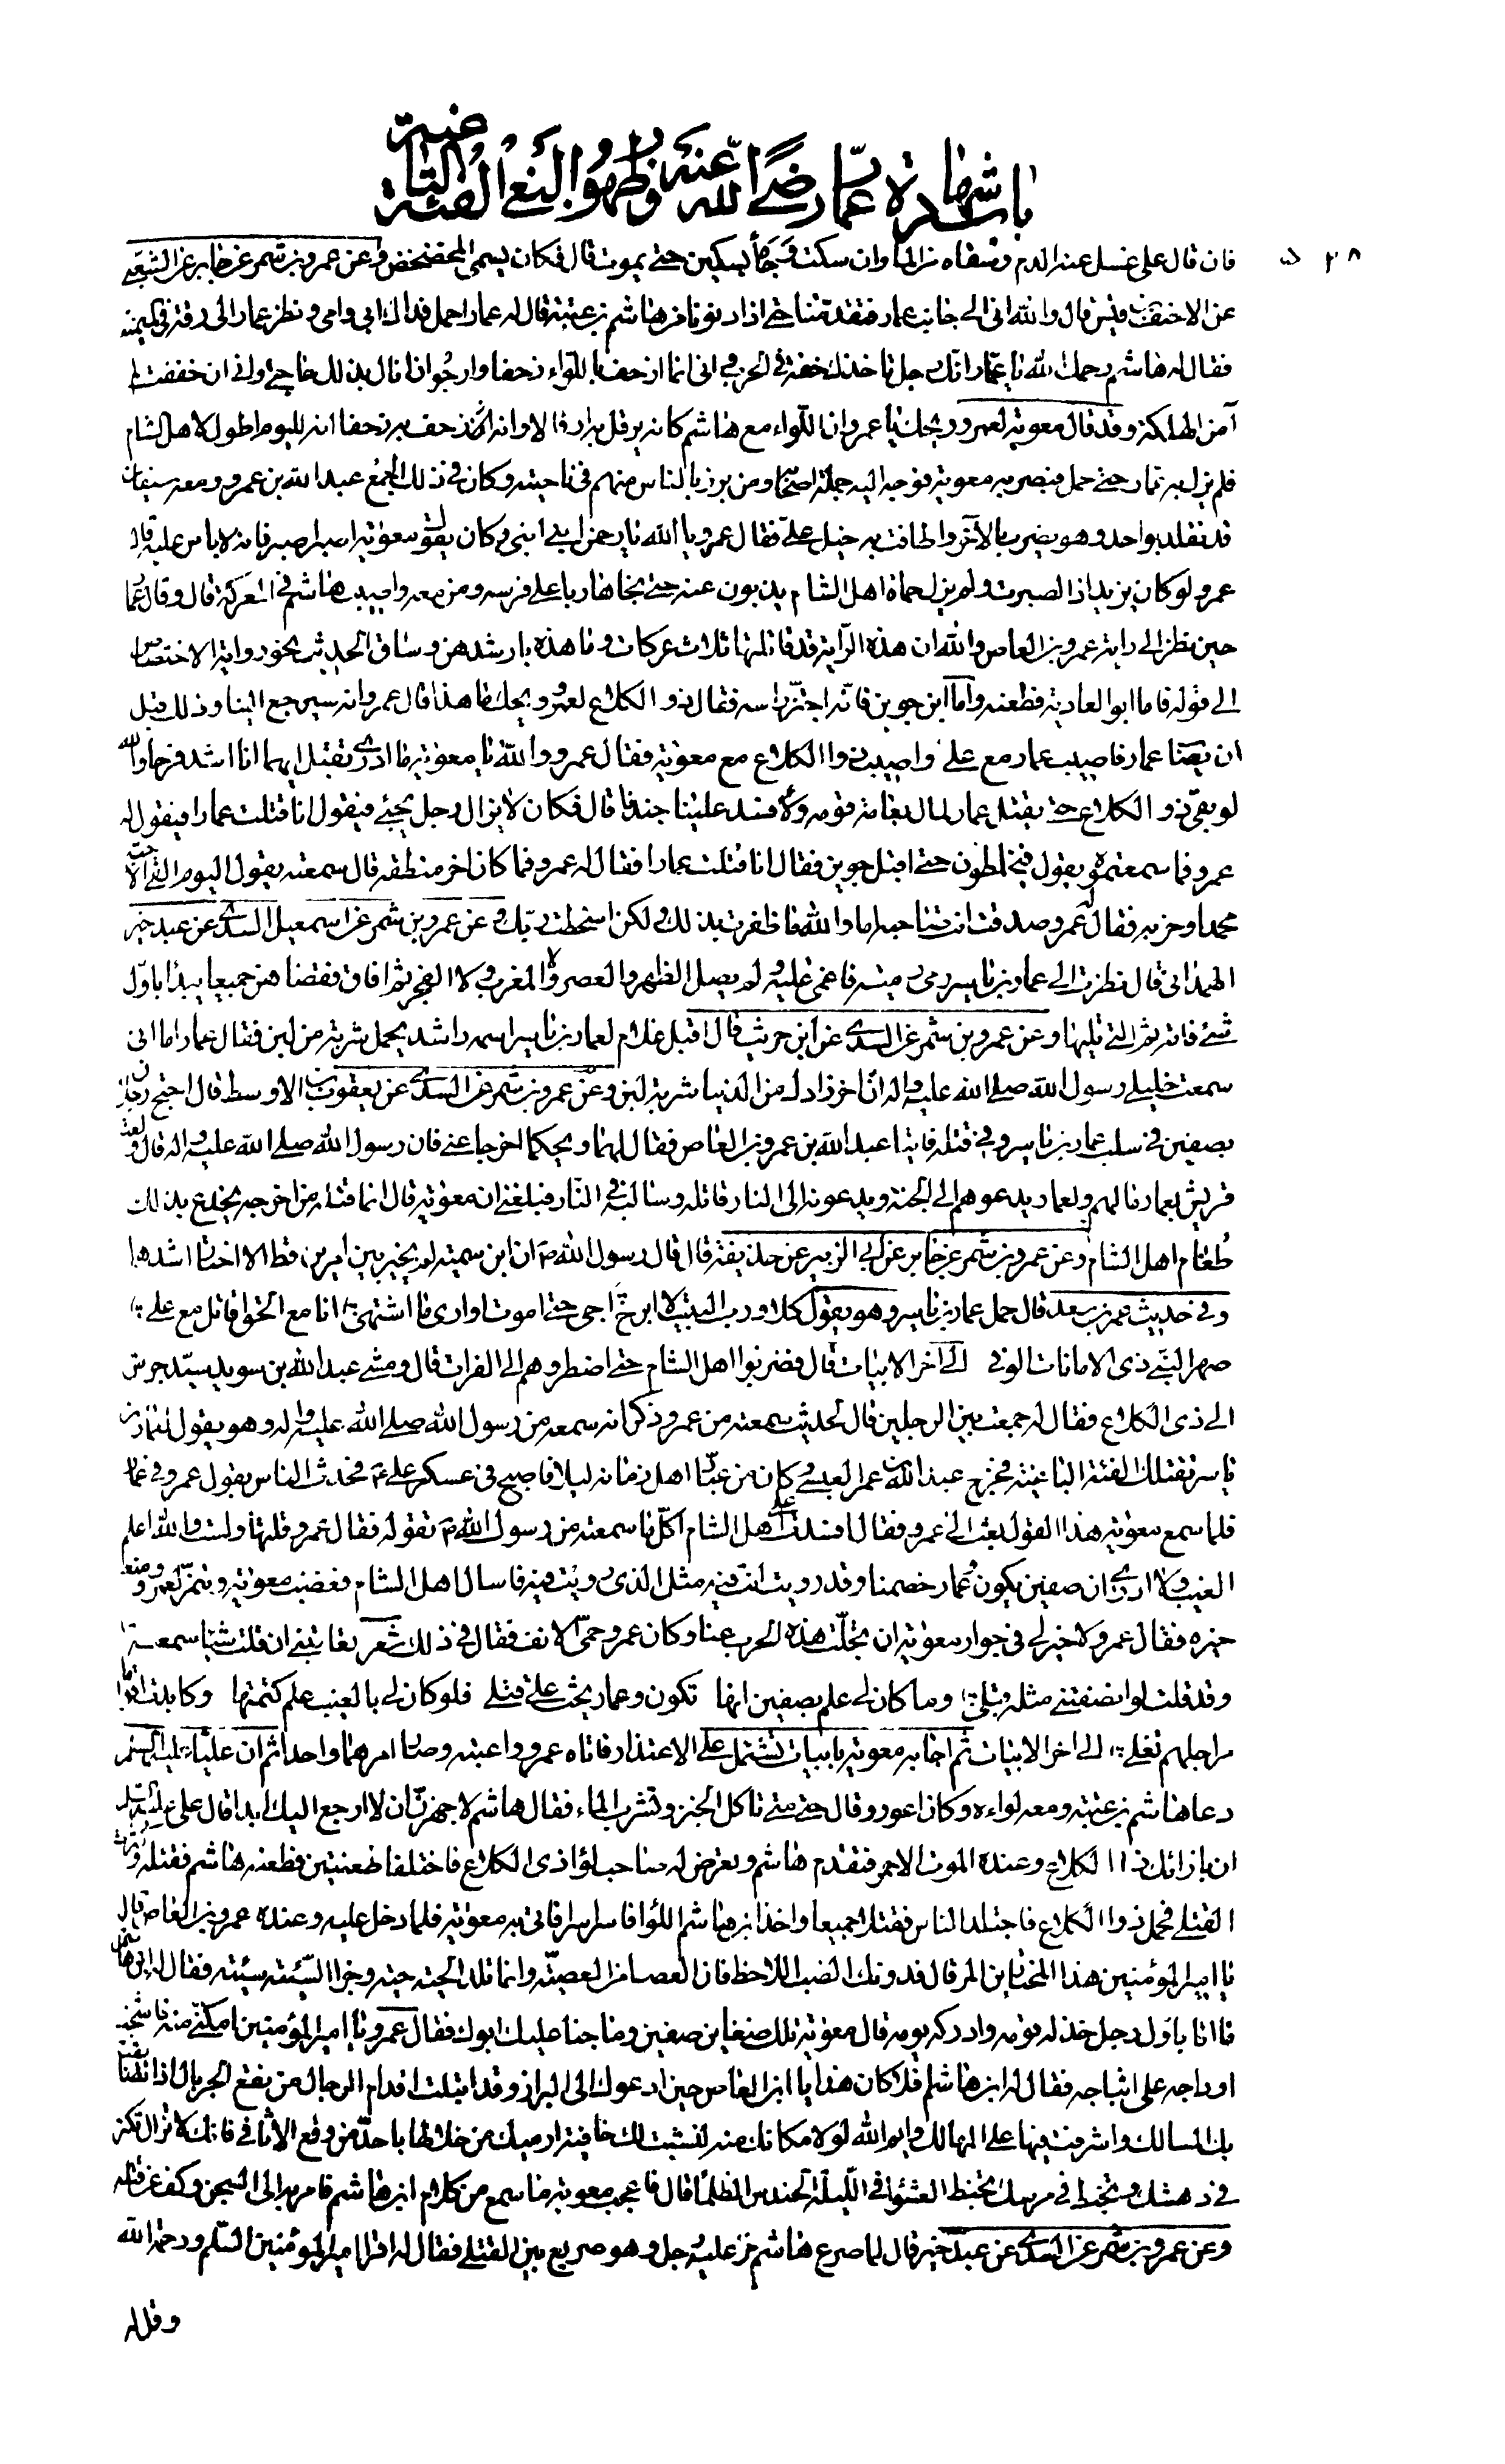 باب شهادة عمار رضي الله عنه وظهور البغي الفئة الباغية
فان قال علي غسل عنه الدم وسقاه من الماء وان سكت وجأه بسكين حتى يموت قال فكان يسمى المخضخض وعن عمرو بن شمر عن جابر عن الشعبي
عن الاحنف بن قيس قال والله اني الى جانب عمار فتقدمنا حتى اذا دنونا من هاشم بن عتبة قال له عمار احمل فداك ابي وامي ونظر عمار الى رقة في الميمنة
فقال له هاشم رحمك الله يا عمار انك رجل تأخذك خفة في الحرب واني انما ازحف باللواء زحفا وارجو ان انال بذلك حاجتي واني ان خففت لم
آمن الهلكة وقد قال معوية لعمرو ويحك يا عمرو ان اللواء مع هاشم كانه يرقل به ارقالا وانه ان زحف به زحفا انه لليوم اطول لاهل الشام
فلم يزل به عمار حتى حمل فبصر به معوية فوجه اليه حملة اصحابه ومن يزن بالناس منهم في ناحيته وكان في ذلك الجمع عبد الله بن عمرو ومعه سيفان
قد تقلد بواحد وهو يضرب بالآخر واطافت به خيل علي فقال عمرو يا الله يا رحمن ابني ابني وكان يقول معوية اصبر اصبر فانه لا بأس عليه قال
عمرو لو كان يزيد اذا لصبرت ولم يزل حماة اهل الشام يذبون عنه حتى نجا هاربا على فرسه ومن معه واصيب هاشم في المعركة قال وقال عمار
حين نظر الى راية عمرو بن العاص والله ان هذه الراية قد قاتلتها ثلاث عركات وما هذه بارشدهن وساق الحديث نحو رواية الاختصاص
الى قوله فاما ابو العادية فطعنه واما ابن جوين فانه اجتز راسه فقال ذو الكلاع لعمرو ويحك ما هذا قال عمرو انه سيرجع الينا وذلك قبل
ان يصاب عمار فاصيب عمار مع علي واصيب ذو الكلاع مع معوية فقال عمرو والله يا معوية ما ادري بقتل ايهما انا اشد فرحا والله
لو بقي ذو الكلاع حتى يقتل عمار لمال بعامة قومه ولأفسد علينا جندنا قال فكان لا يزال رجل يجيء فيقول انا قتلت عمارا فيقول له
عمرو فما سمعتموه يقول فيخلطون حتى اقبل جوين فقال انا قتلت عمارا فقال له عمرو فما كان اخر منطقه قال سمعته يقول اليوم القى الاحبة
محمدا وحزبه فقال له عمرو صدقت انت صاحبه اما والله ما ظفرت يداك ولكن اسخطت ربك وعن عمرو بن شمر عن اسمعيل السدي عن عبد خير
الهمداني قال نظرت الى عمار بن ياسر رمى رمية فاغمي عليه ولم يصل الظهر والعصر ولا المغرب ولا الفجر ثم افاق فقضاهن جميعا يبدأ باول
شيء فاته ثم التي تليها وعن عمرو بن شمر عن السدي عن ابن حريث قال اقبل غلام لعمار بن ياسر اسمه راشد يحمل شربة من لبن فقال عمار اما اني
سمعت خليلي رسول الله صلى الله عليه واله ان اخر زادك من الدنيا شربة لبن وعن عمرو بن شمر عن السدي عن يعقوب بن الاوسط قال احتج رجلان
بصفين في سلب عمار بن ياسر وفي قتله فاتيا عبد الله بن عمرو بن العاص فقال لهما ويحكما اخرجا عني فان رسول الله صلى الله عليه واله قال ولعت
قريش بعمار ما لهم ولعمار يدعوهم الى الجنة ويدعونه الى النار قاتله وسالبه في النار فبلغني ان معوية قال انما قتله من اخرجه يخدع بذلك
طغام اهل الشام وعن عمرو بن شمر عن جابر عن ابي الزبير عن حذيفة قال قال رسول الله ص ان ابن سمية لم يخير بين امرين قط الا اختار اشدهما
وفي حديث عمر بن سعد قال حمل عمار بن ياسر وهو يقول كلا ورب البيت لا ابرح اجي حتى اموت او ارى ما اشتهي انا مع الحق اقاتل مع علي
صهر النبي ذي الامانات الوفي الى اخر الابيات قال فضربوا اهل الشام حتى اضطروهم الى الفرات قال ومشى عبد الله بن سويد سيد جرش
الى ذي الكلاع فقال له جمعت بين الرجلين قال لحديث سمعته من عمرو ذكر انه سمعه من رسول الله صلى الله عليه واله وهو يقول لعمار بن
ياسر تقتلك الفئة الباغية فخرج عبد الله بن عمر العبسي وكان من عباد اهل زمانه ليلا فاصبح في عسكر علي ع فحدث الناس بقول عمرو في عمار
فلما سمع معوية هذا القول بعث الى عمرو فقال افسدت علي اهل الشام اكل ما سمعته من رسول الله ص تقوله فقال عمرو قلتها ولست والله اعلم
الغيب ولا ادري ان صفين يكون عمار خصمنا وقد رويت انت فيه مثل الذي رويت فيه فاسأل اهل الشام فغضب معوية وتنمر لعمرو ومنعه
خيره فقال عمرو لا خير لي في جوار معوية ان تجلت هذه الحرب عنا وكان عمرو حمي الانف فقال في ذلك شعر تعاتبني ان قلت شيئا سمعته
وقد قلت لو انصفتني مثله قبلي وما كان لي علم بصفين انها تكون وعمار يحث على قتلي فلو كان لي بالغيب علم كتمتها وكابدت اقواما
مراجلهم تغلي الى اخر الابيات ثم اجابه معوية بابيات تشتمل على الاعتذار فاتاه عمرو واعتبه وصار امرهما واحدا ثم ان عليا عليه السلام
دعا هاشم بن عتبة ومعه لواءه وكان اعور وقال حتى متى تاكل الخبز وتشرب الماء فقال هاشم لاجهزن ان لا ارجع اليك ابدا قال علي عليه السلام
ان بازائك ذا الكلاع وعنده الموت الاحمر فتقدم هاشم وتعرض له صاحب لواء ذي الكلاع فاختلفا طعنتين فطعنه هاشم فقتله وكثرت
القتلى فحمل ذو الكلاع فاجتلد الناس فقتلا جميعا واخذ ابن هاشم اللواء فاسر اسرا فاتي به معوية فلما دخل عليه وعنده عمرو بن العاص قال
يا امير المؤمنين هذا المختال ابن المرقال فدونك الضب اللاحظ فان العصا من العصية وانما تلد الحية حية وجزاء السيئة سيئة فقال له ابن هاشم
ما انا باول رجل خذله قومه وادركه يومه قال معوية تلك ضغاين صفين وما جنا عليك ابوك فقال عمرو يا امير المؤمنين امكني منه فاشخب
اوداجه على اثباجه فقال له ابن هاشم فلا كان هذا يا ابن العاص حين ادعوك الى البراز وقد ابتلت اقدام الرجال من نقع الجريال اذ تضايقت
بك المسالك واشرفت فيها على المهالك وايم الله لولا مكانك منه لنشبت لك خافية ارميك من خلالها باحد من وقع الاثافي فانك لا تزال تكثر
في دهشك وتخبط في مرسك تخبط العشواء في الليلة الحندس الظلماء قال فاعجب معوية ما سمع من كلام ابن هاشم فامر به الى السجن وكف عن قتله
وعن عمرو بن شمر عن السدي عن عبد خير قال لما صرع هاشم مر عليه رجل وهو صريع بين القتلى فقال له اقرا امير المؤمنين السلام ورحمة الله
وقل له